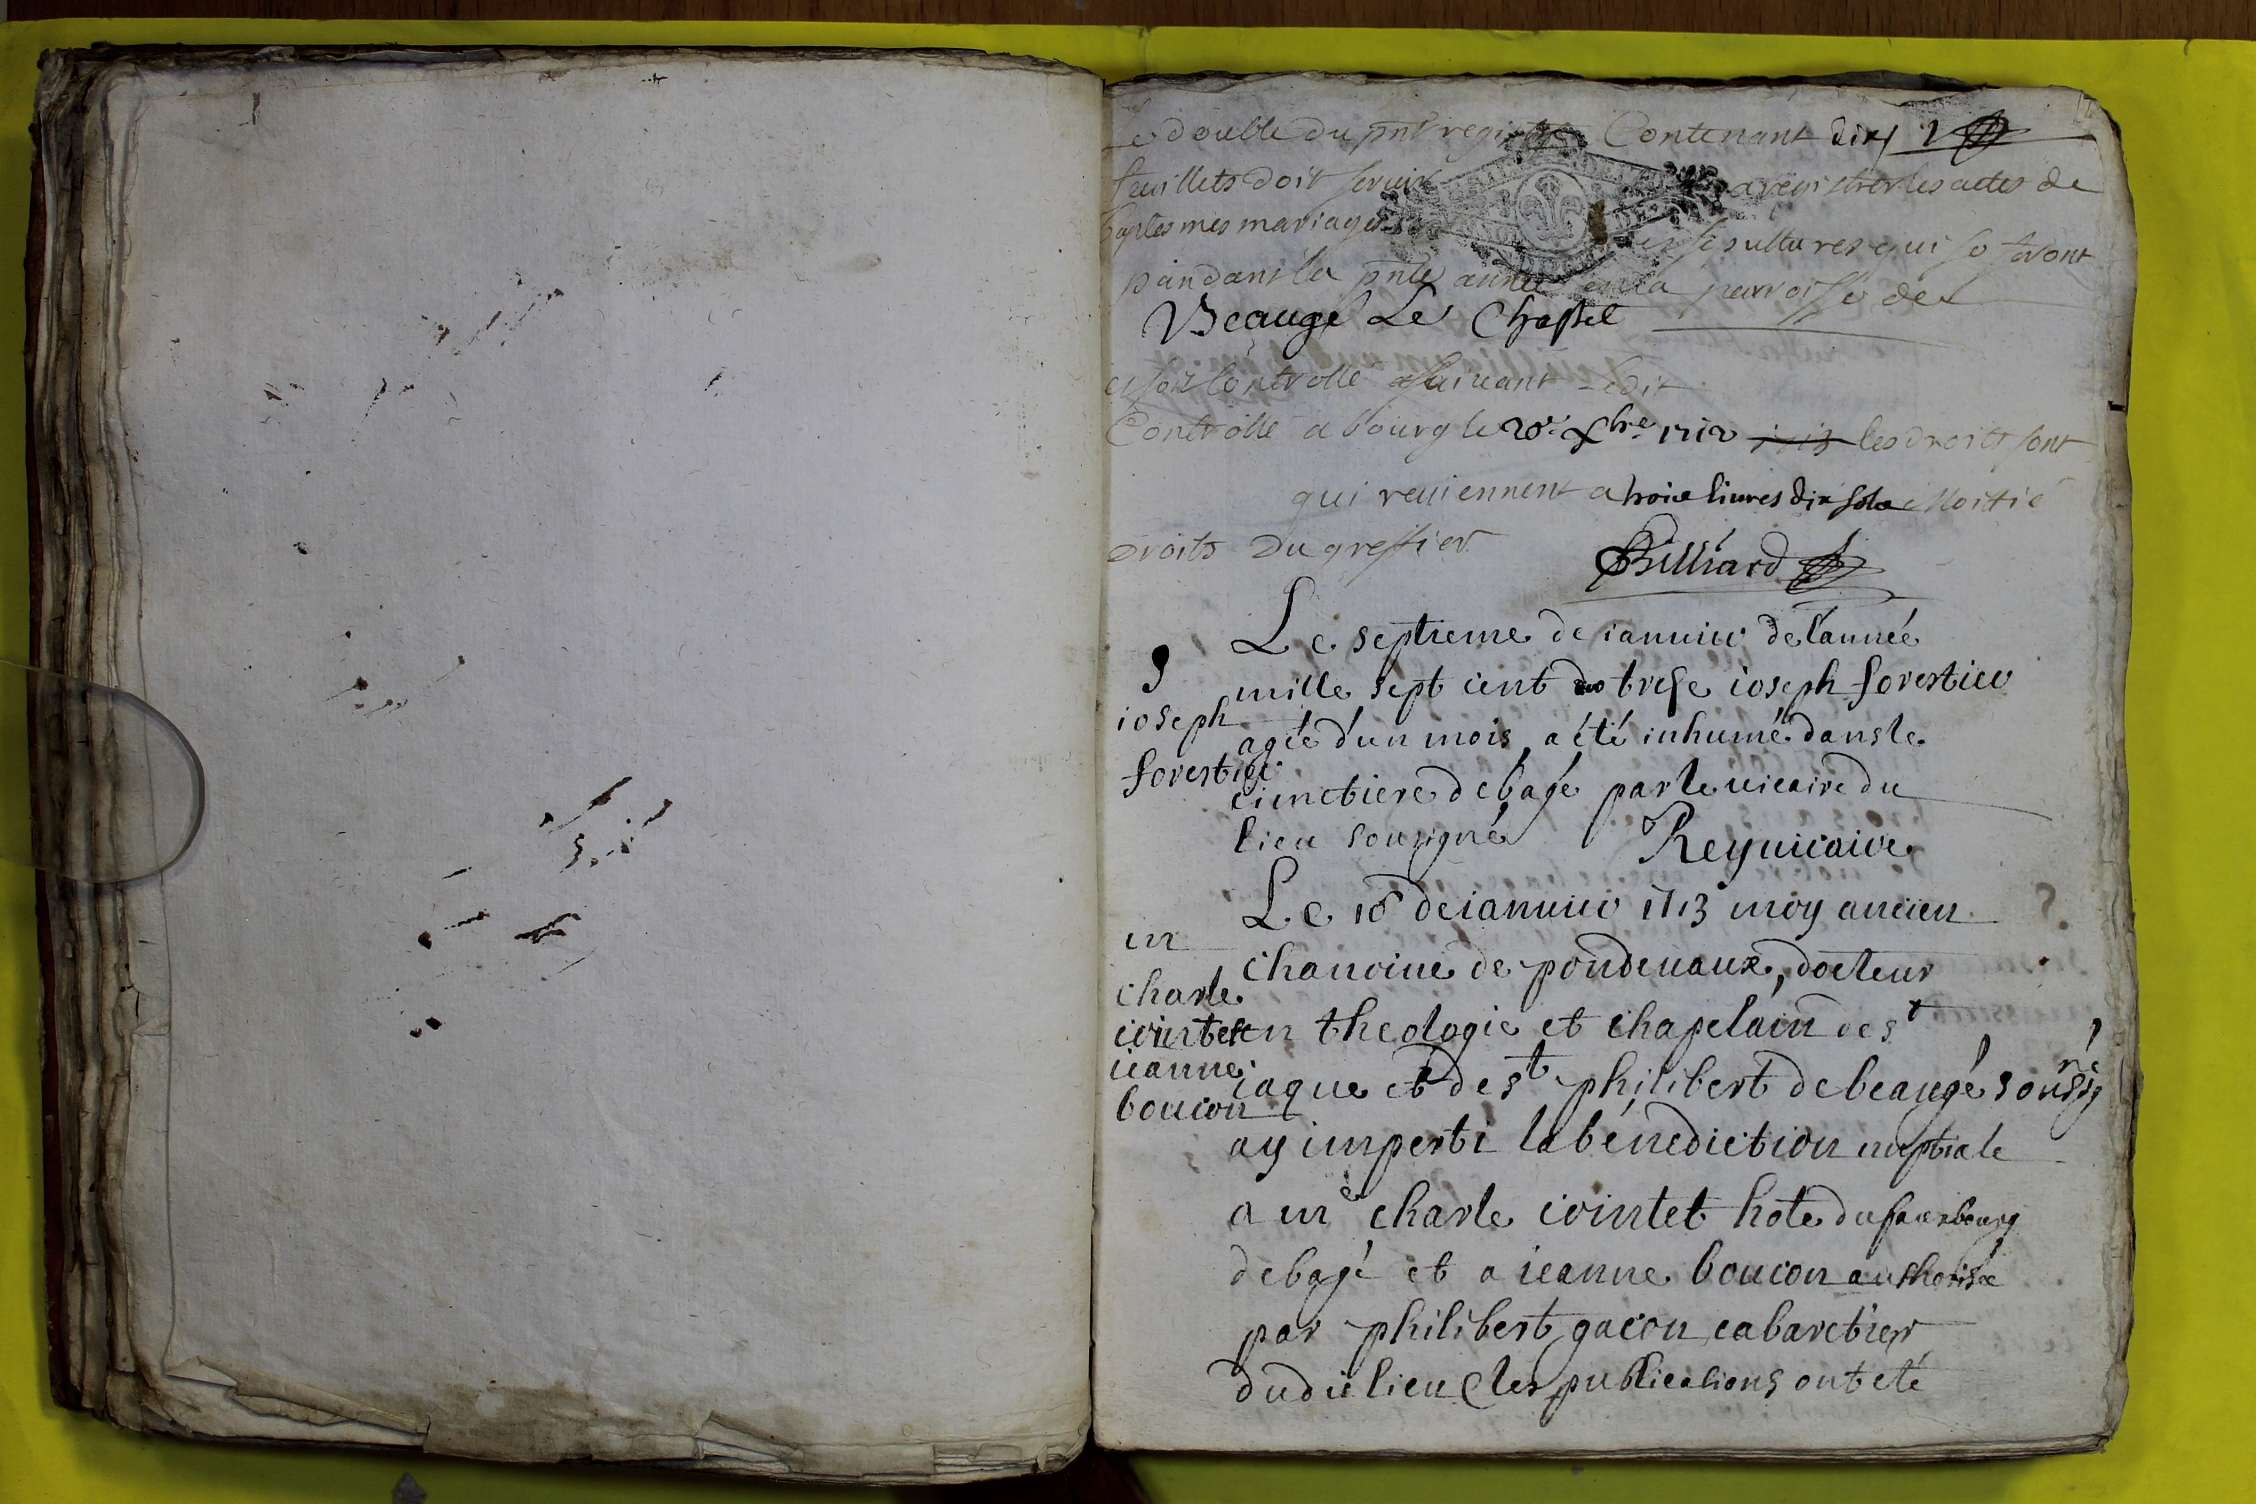 Le double du pnt registre Contenant dix 1
feuillets doit servir a registrer les actes de
baptesmes mariages et sepultures qui se feront
pandant la pnte année en la parroisse de
Beaugé Le Chastel
et soit Controllé suivant Ledit
Controllé a bourg le 20e Xbre 1712 les droits sont
qui reuiennent a troix liures dix sols Moitié
droits du greffier
Billiard
Le septieme de ianuier de l'année
mille sept cent trese ioseph forestier
agée d'un mois a été inhumé dans le
cimetiere de bagé par le uicaire du
lieu sousigné Rey uicaire
S
ioseph
forestier
Le 10 de ianuier 1713 moy ancien
chanoine de pondeuaux, docteur
en theologie et chapelain de st
iaque et de st philibert de beaugé sousigné
ay imperti la bénediction nuptiale
a me charle cointet hote du fauxbourg
de bagé et a ieanne boucon authorisée
par philibert gacon cabaretier
dudit lieu les publications ont eté
m
charle
cointet
ieanne
boucon